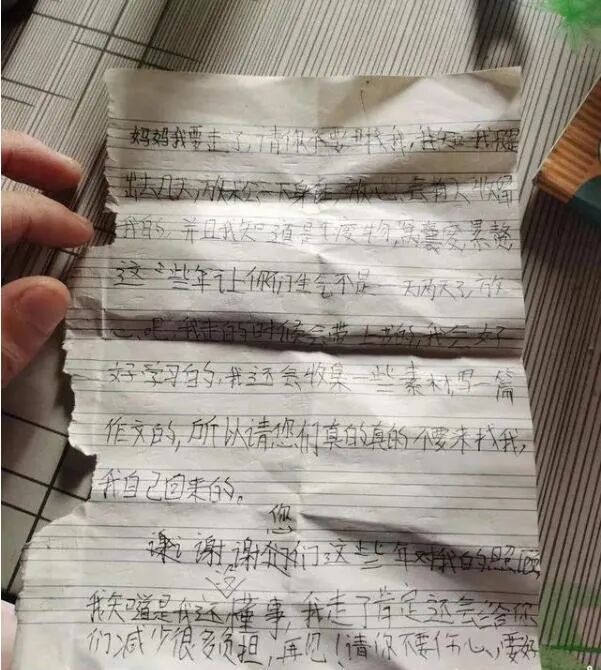 妈妈我要走了,请你不要找我,我
出去几天,放松一下身 放心,会有人收留
我的,并且我知道是 废物,窝囊废,累赘
这些年让你们生气不是一天两天了,放
心吧,我走的时候会带上书的,我会好
好学习的,我还会收集一些素材,写一篇
作文的,所以请您们真的真的不要来找我,
我自己回来的。
谢谢,谢谢您们这些年对我的照顾
我知道是我没懂事,我走了肯定还会给你
们减少很多负担,再见!请你不要伤心,要好